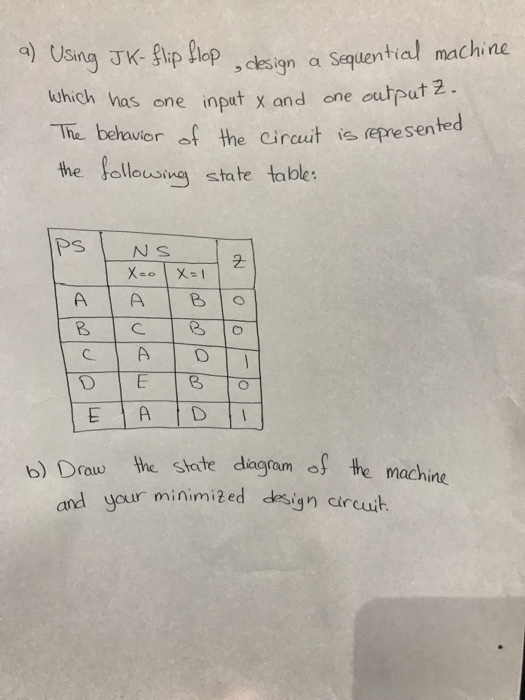 a) Using JK-flip flop, design a sequential machine
which has one input x and one output Z.
The behavior of the circuit is represented
the following state table:
PS NS Z
X=0 X=1
A A B 0
B C B 0
C A D 1
D E B 0
E A D 1
b) Draw the state diagram of the machine
and your minimized design circuit.